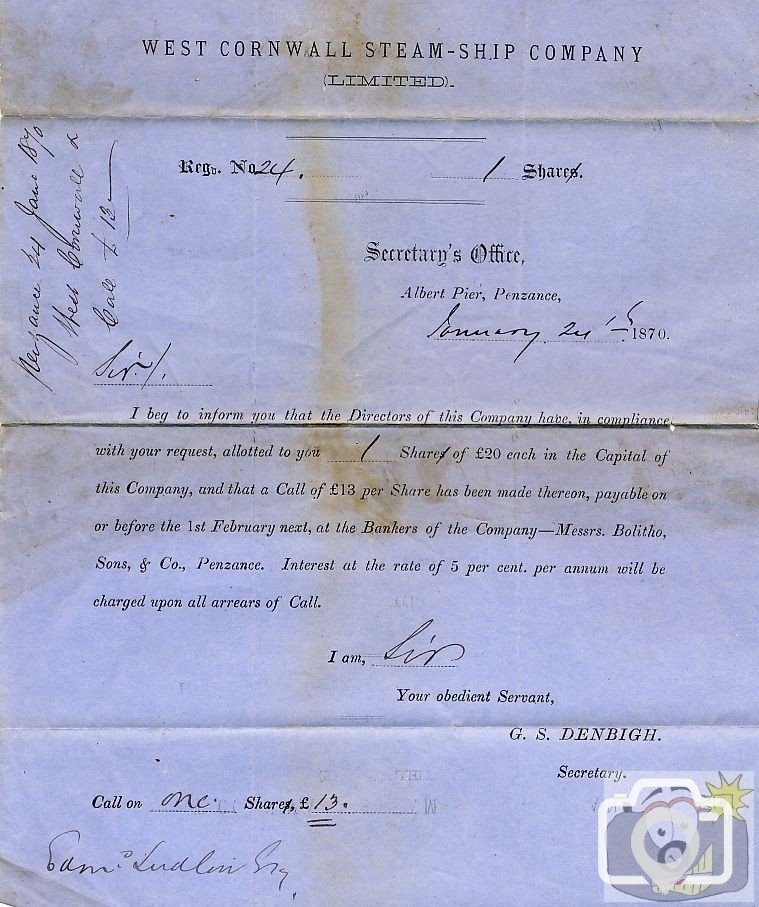 WEST CORNWALL STEAM-SHIP COMPANY
(LIMITED).
Regd. No 24. 1 Shares.
Secretary's Office,
Albert Pier, Penzance,
January 24 1870.
Sir/.
I beg to inform you that the Directors of this Company have, in compliance
with your request, allotted to you 1 Shares of £20 each in the Capital of
this Company, and that a Call of £13 per Share has been made thereon, payable on
or before the 1st February next, at the Bankers of the Company—Messrs. Bolitho,
Sons, & Co., Penzance. Interest at the rate of 5 per cent. per annum will be
charged upon all arrears of Call.
I am, Sir
Your obedient Servant,
G. S. DENBIGH.
Secretary.
Call on one. Shares, £ 13.
Edmd Ludlow Esq
Penzance 24 Jany 1870
West Cornwall
Call £ 13